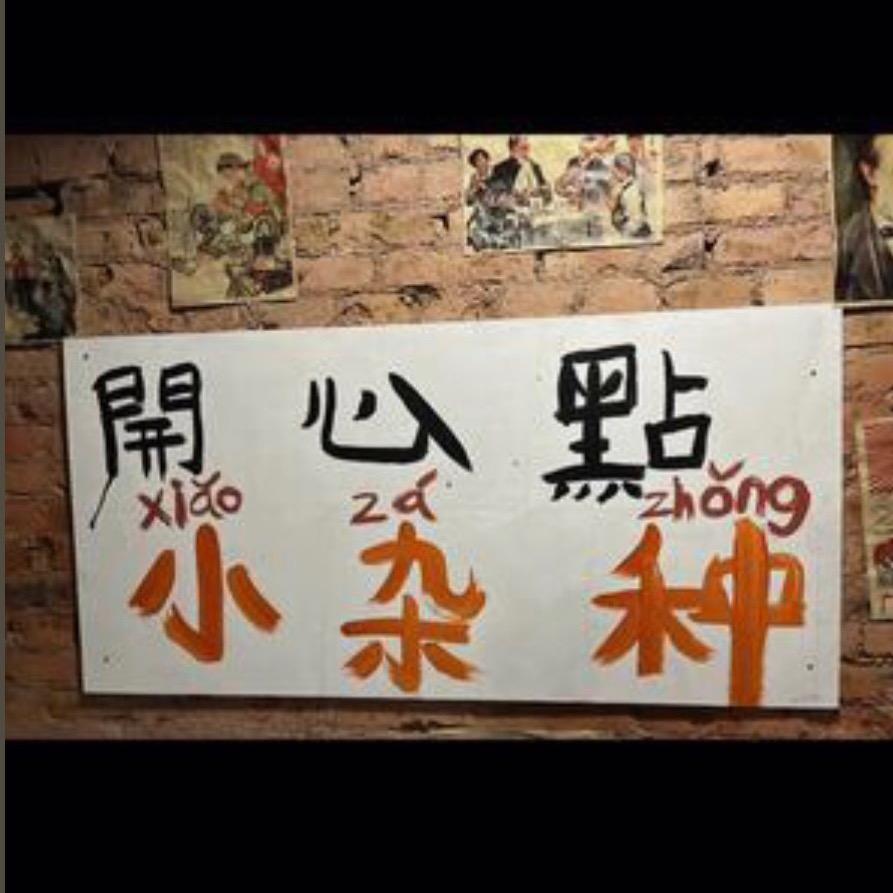 開心點
xiǎo zá zhǒng
小杂种